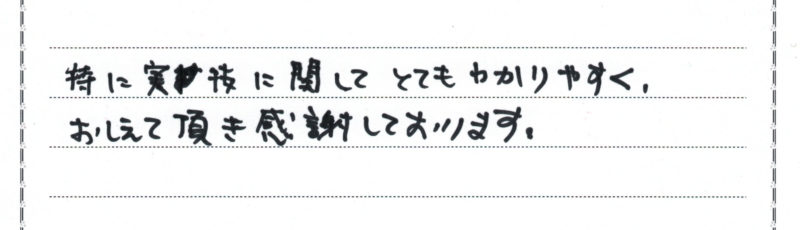 特に実技に関してとてもわかりやすく、
おしえて頂き感謝しております。